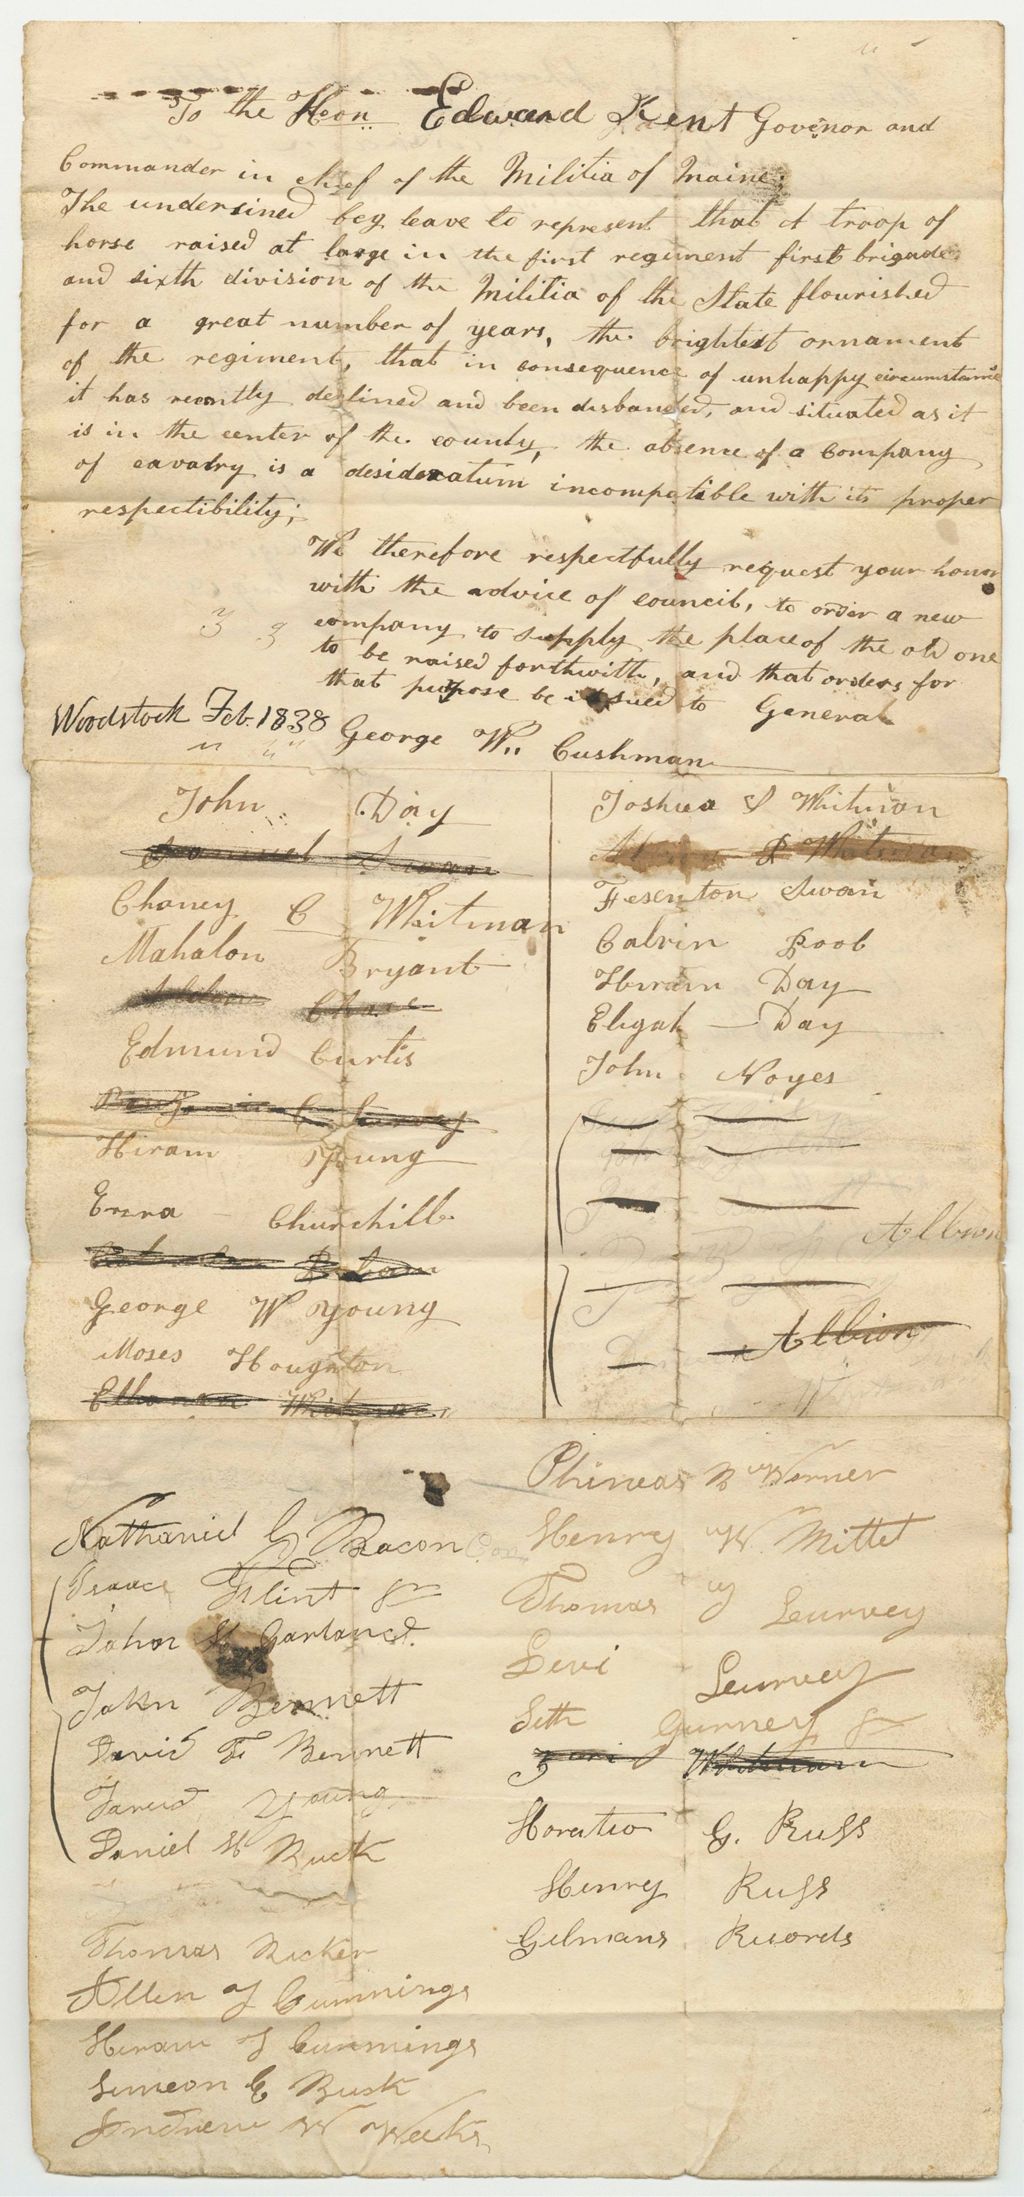 To the Hon. Edward Kent Govenor and
Commander in chief of the Militia of Maine.
The undersined beg leave to represent that A troop of
horse raised at large in the first regiment first brigade
and sixth division of the Militia of the State flourished
for a great number of years, the brightest ornament
of the regiment, that in consequence of unhappy circumstance
it has recently declined and been disbanded, and situated as it
is in the center of the county, the absence of a Company
of cavalry is a desideratum incompatible with its proper
respectibility;
We therefore respectfully request your honor
with the advice of council, to order a new
company to supply the place of the old one
to be raised forthwith, and that orders for
that purpose be issued to General
Woodstock Feb. 1838
George W. Cushman
John Day
Chaney C Whitman
Mahalon Bryant
Chase
Edmund Curtis
Hiram Young
Ezra Churchill
George W Young
Moses Houghton
Whitman
Joshua S Whitman
Whitman
Fesenton Swan
Calvin Poob
Hiram Day
Eligah Day
John Noyes
Albion
Albion
Nathaniel G Bacon
Flint Jr
John Garland
John Bennett
David F Bennett
Young
Daniel H Buck
Thomas Ricker
Allen J Cummings
Hiram J Cummings
Simeon C Busk
Andrew W Weeks
Phineas Werner
Henry W Mittel
Thomas J Leurvey
Levi Leurvey
Seth Gurney Jr
Whitman
Horatio G. Russ
Henry Russ
Gilmans Records